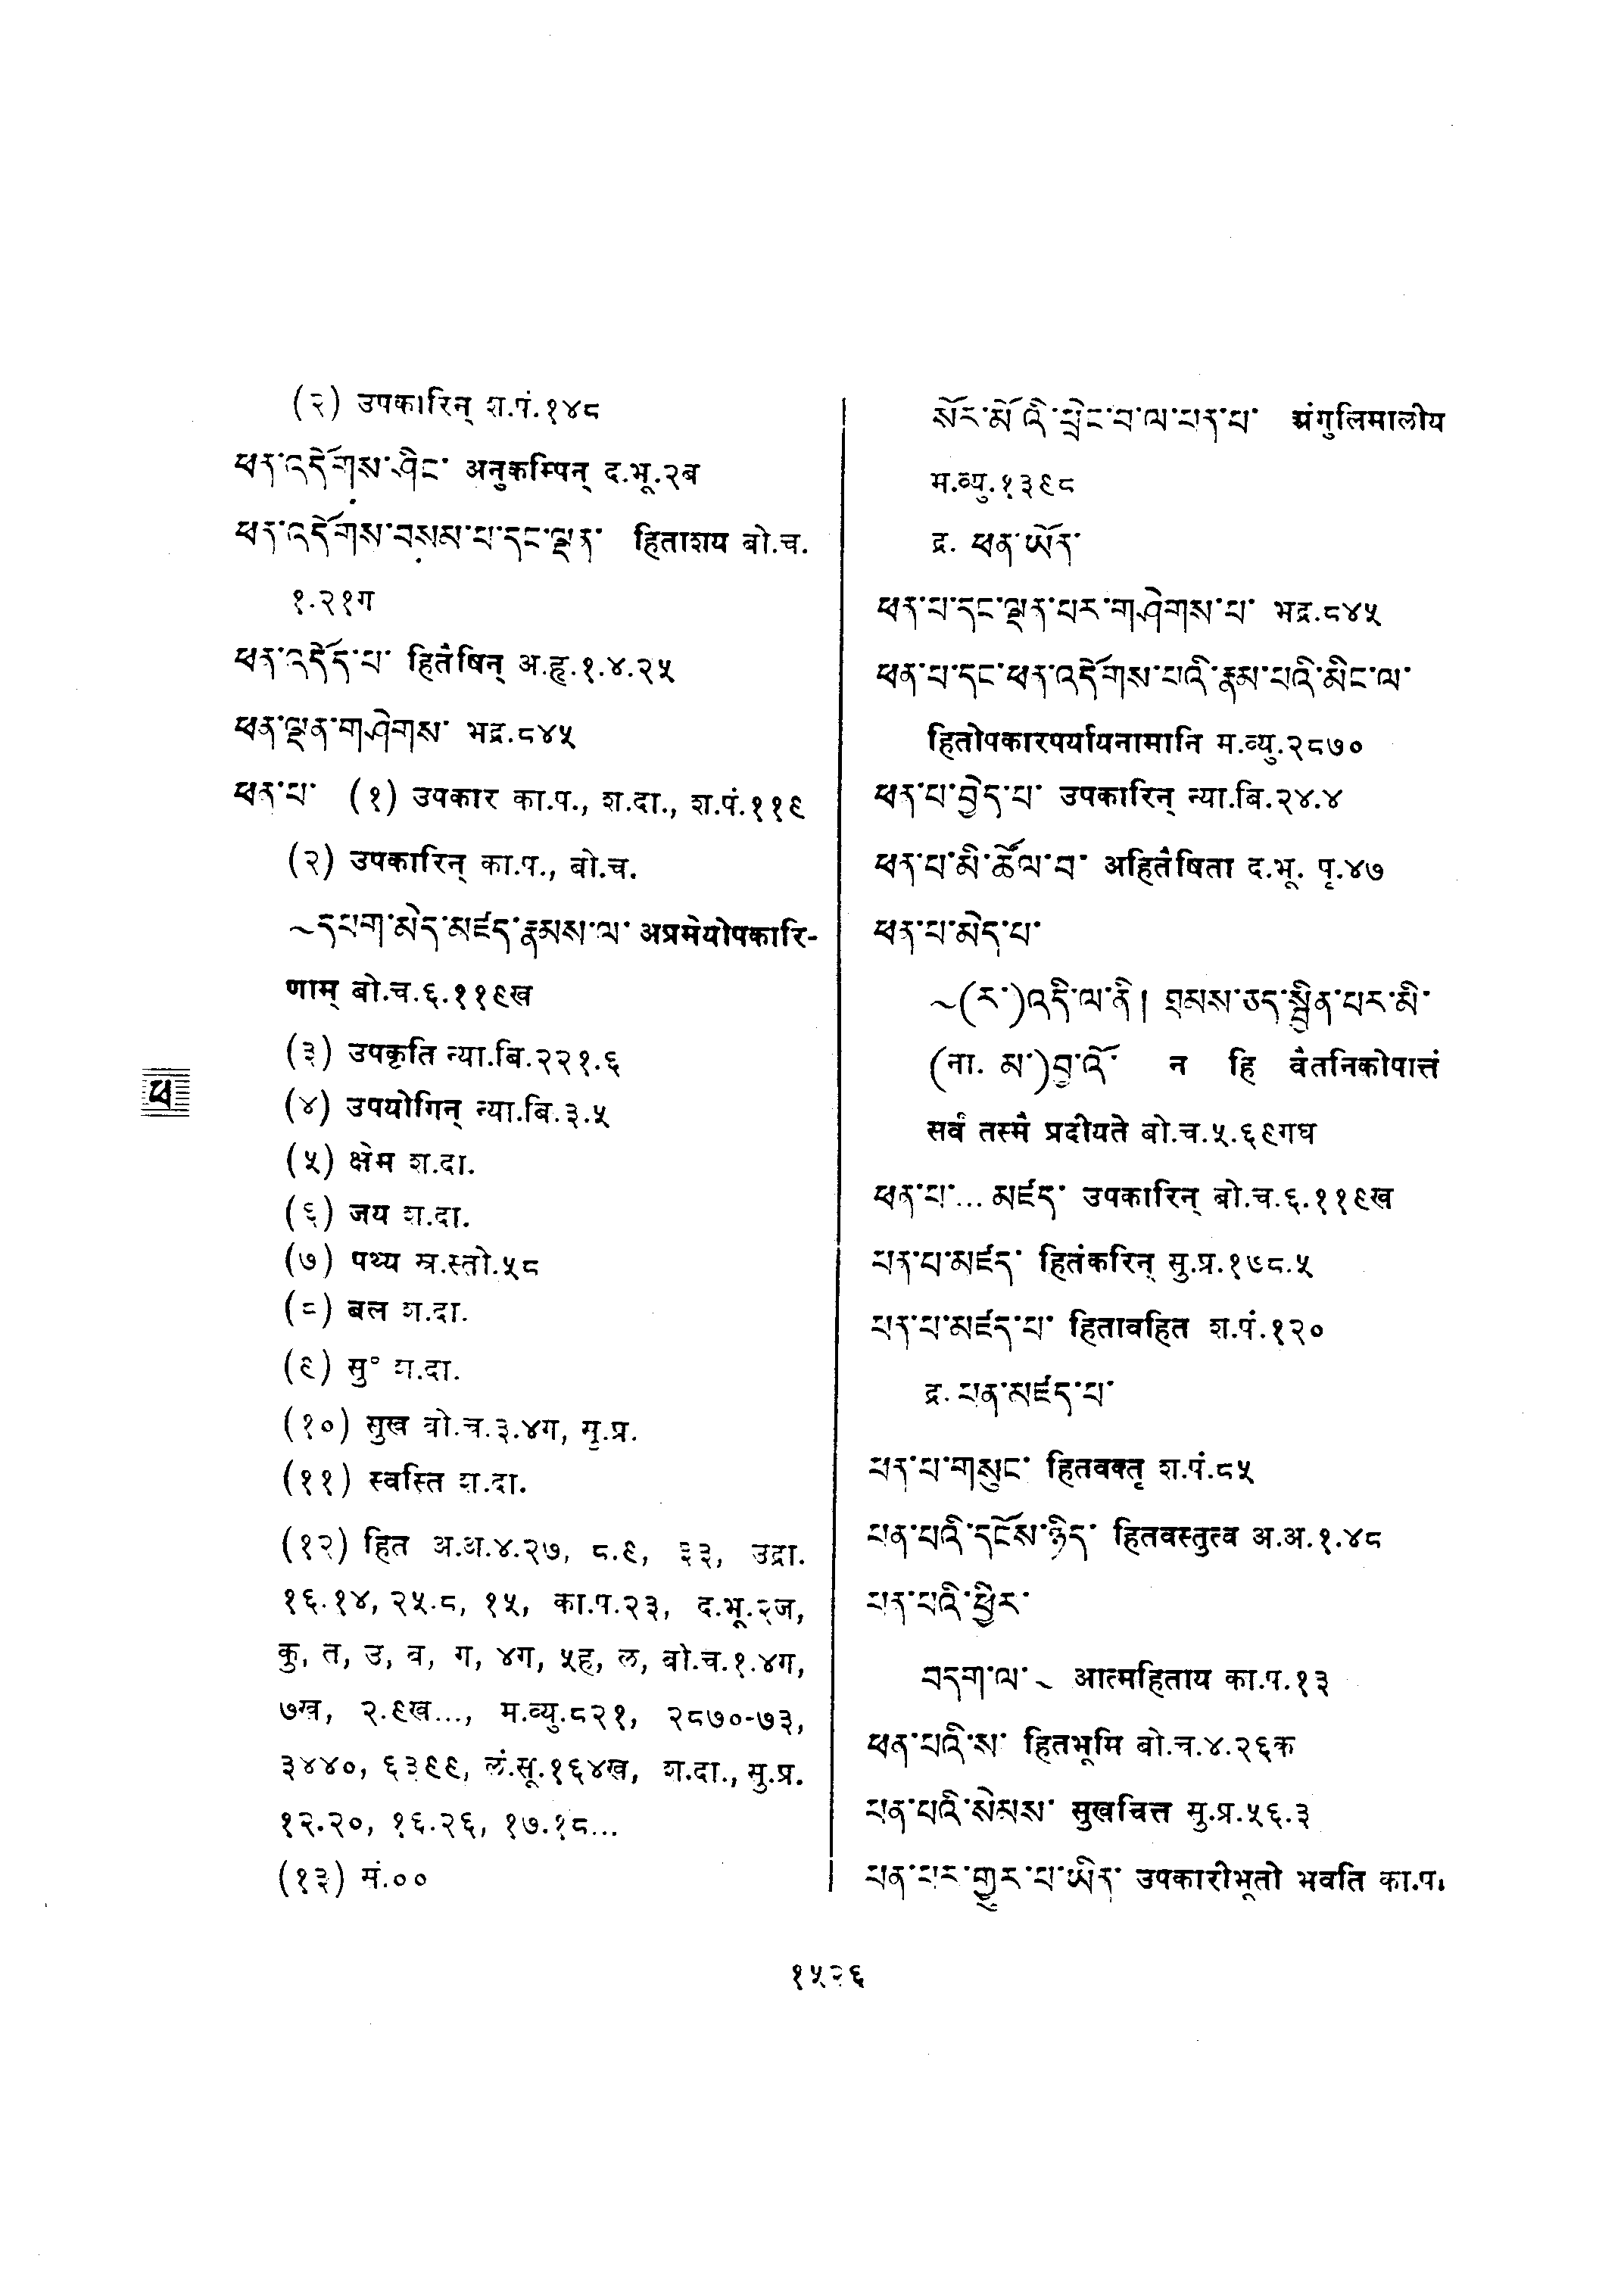 (२) उपकारिन् श.पं.१४८
ཕན་འདོགས་ཤིང་ अनुकम्पिन् द.भू.२ब
ཕན་འདོགས་བསམ་པ་དང་ལྡན་ हिताशय बो.च.
१.२१ग
ཕན་འདོད་པ་ हितैषिन् अ.हृ.१.४.२५
ཕན་ལྡན་གཤེགས་ भद्र.८४५
ཕན་པ་ (१) उपकार का.प., श.दा., श.पं.११९
(२) उपकारिन् का.प., बो.च.
~དཔག་མེད་མཛད་རྣམས་ལ་ अप्रमेयोपकारि-
णाम् बो.च.६.११९ख
(३) उपकृति न्या.बि.२२१.६
(४) उपयोगिन् न्या.बि.३.५
ཕ
(५) क्षेम श.दा.
(६) जय श.दा.
(७) पथ्य स्र.स्तो.५८
(८) बल श.दा.
(९) सु° श.दा.
(१०) सुख बो.च.३.४ग, सु.प्र.
(११) स्वस्ति श.दा.
(१२) हित अ.अ.४.२७, ८.९, ३३, उद्रा.
१६.१४, २५.८, १५, का.प.२३, द.भू.२ज,
कु, त, उ, व, ग, ४ग, ५ह, ल, बो.च.१.४ग,
७ख, २.९ख..., म.व्यु.८२१, २८७०-७३,
३४४०, ६३९९, लं.सू.१६४ख, श.दा., सु.प्र.
१२.२०, १६.२६, १७.१८...
(१३) मं.००
སོར་མོའི་ཕྲེང་བ་ལ་ཕན་པ་ अंगुलिमालीय
म.व्यु.१३९८
द्र. ཕན་ཡོན་
ཕན་པ་དང་ལྡན་པར་གཤེགས་པ་ भद्र.८४५
ཕན་པ་དང་ཕན་འདོགས་པའི་རྣམ་པའི་མིང་ལ་
हितोपकारपर्यायनामानि म.व्यु.२८७०
ཕན་པ་བྱེད་པ་ उपकारिन् न्या.बि.२४.४
ཕན་པ་མི་ཚོལ་བ་ अहितैषिता द.भू. पृ.४७
ཕན་པ་མེད་པ་
~(ར་)འདི་ལ་ནི། ཐམས་ཅད་སྦྱིན་པར་མི་
(ना. མ་)བྱ་འོ་ न हि वैतनिकोपात्तं
सर्वं तस्मै प्रदीयते बो.च.५.६९गघ
ཕན་པ་... མཛད་ उपकारिन् बो.च.६.११९ख
ཕན་པ་མཛད་ हितंकरिन् सु.प्र.१७८.५
ཕན་པ་མཛད་པ་ हितावहित श.पं.१२०
द्र. ཕན་མཛད་པ་
ཕན་པ་གསུང་ हितवक्तृ श.पं.८५
ཕན་པའི་དངོས་ཉིད་ हितवस्तुत्व अ.अ.१.४८
ཕན་པའི་ཕྱིར་
བདག་ལ་~ आत्महिताय का.प.१३
ཕན་པའི་ས་ हितभूमि बो.च.४.२६क
ཕན་པའི་སེམས་ सुखचित्त सु.प्र.५६.३
ཕན་པར་གྱུར་པ་ཡིན་ उपकारीभूतो भवति का.प.
१५२६